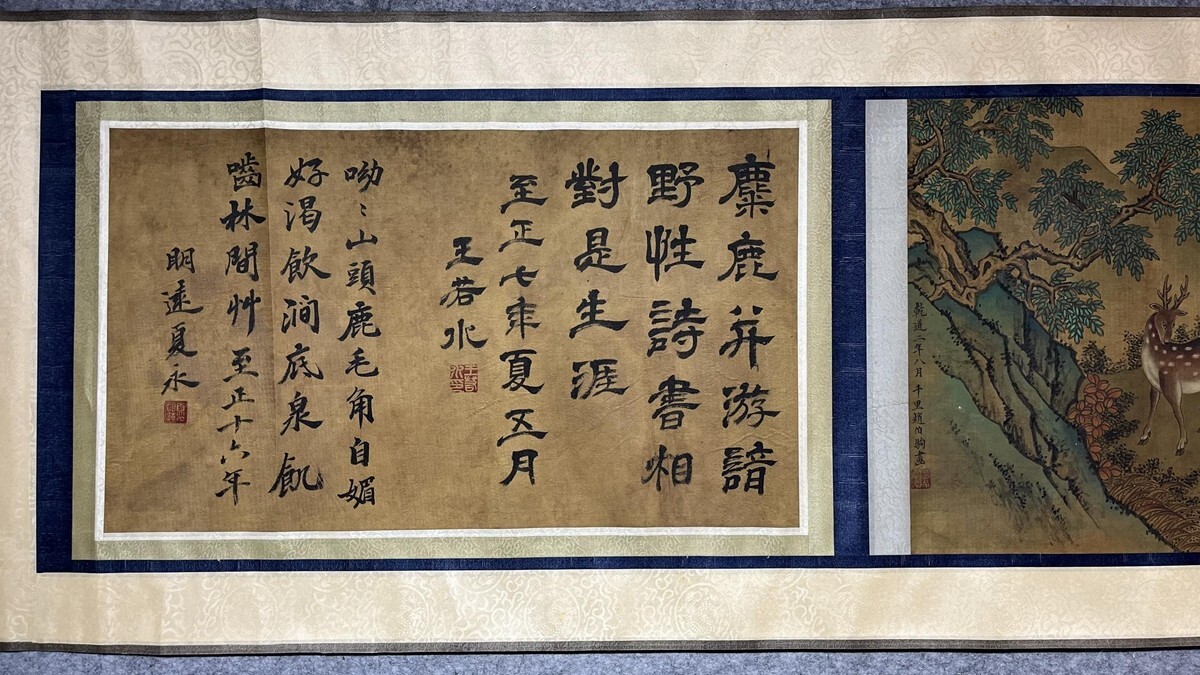 乾道二年八月 千里趙伯駒畫
麋鹿并游諳
野性詩書相
對是生涯
至正七年夏五月
王若水
呦〻山頭鹿毛角自媚
好渴飲澗底泉飢
嚙林間艸 至正十六年
明遠夏永